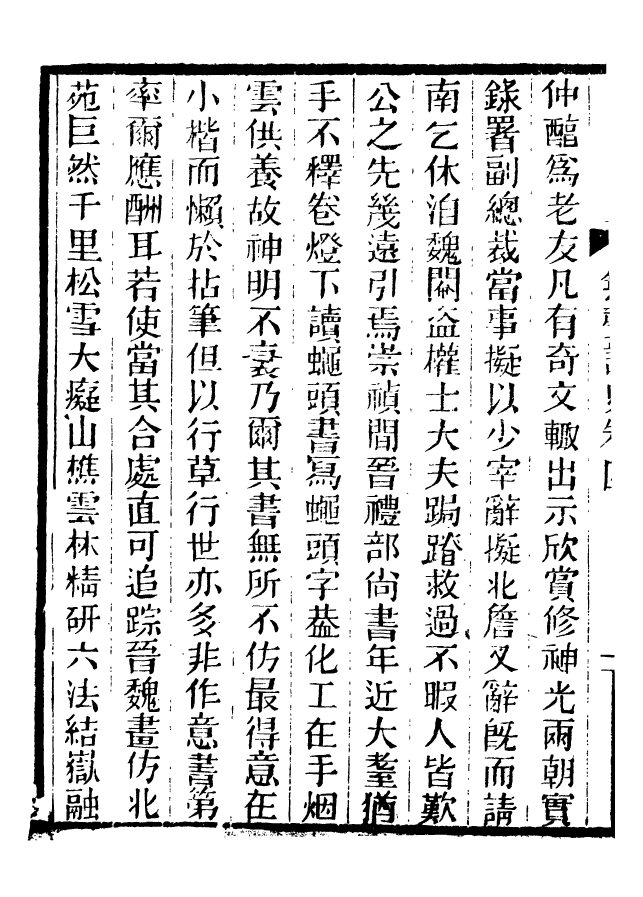 仲醇為老友凡有奇文輙出示欣賞修神光兩朝實
錄署副總裁當事擬以少宰辭擬北詹又辭既而請
南乞休洎魏閹益權士大夫跼蹐救過不暇人皆歎
公之先幾遠引焉崇禎間晉禮部尚書年近大耋猶
手不釋卷燈下讀蠅頭書寫蠅頭字葢化工在手烟
雲供養故神明不衰乃爾其書無所不仿最得意在
小楷而懶於拈筆但以行草行世亦多非作意書第
率爾應酬耳若使當其合處直可追踪晉魏畫仿北
苑巨然千里松雪大癡山樵雲林精研六法結嶽融